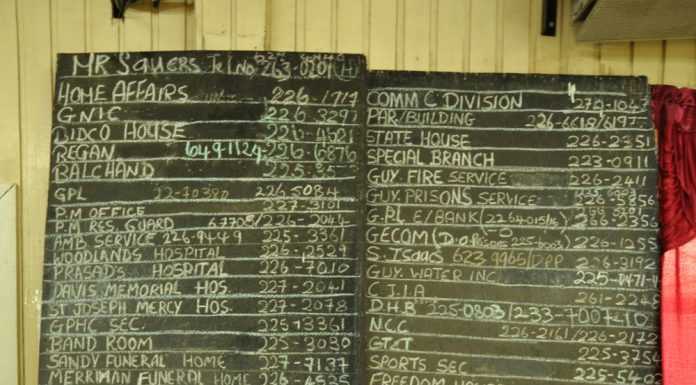 MR SQUERS Tel No 263-0201 (H)
HOME AFFAIRS 226-1717
GNIC 226-3291
BIDCO HOUSE 226-4621
REGAN 649-1124 226-6876
BALCHAND 225-35
GPL 22-70380 226 5084
P.M OFFICE
P.M RES. GUARD 67705/226-2044
AMB. SERVICE 226-9449 225-3361
WOODLANDS HOSPITAL 226-2529
PRASADS HOSPITAL 226-7010
DAVIS MEMORIAL HOS. 227-2041
ST JOSEPH MERCY HOS. 227-2078
GPHC SEC. 225-13361
BAND ROOM 225-3030
SANDY FUNERAL HOME 227-7137
MERRIMAN FUNERAL HOME 226-4535
COMM C DIVISION 270-1043
PAR/BUILDING 226-6618/6197
STATE HOUSE 226-2351
SPECIAL BRANCH 223-0911
GUY. FIRE SERVICE 226-2411
GUY. PRISONS SERVICE 226-5856
G.P.L E/BANK (2264015/16) 266-3356
GECOM (D.O. 225-0003) 226-1255
S. ISAACS 623 9965/DPP 226-3192
GUY. WATER INC. 225-0471-4
C J I A 261-2245
D.H.B 225-0803/233-7007-10
NCC 226-2161/226-2172
GT&T 225-3754
SPORTS SEC. 225-5402
FREEDOM